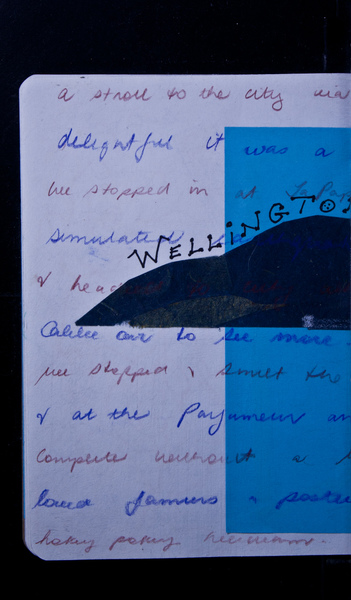 a stroll to the city via
delightful it was a
we stopped in at La Pa
simulated
WELLINGTO
& head
Cable car to see more
we stopped & smelt the
& at the Parfumeur an
complete without a
land famous &
hokey pokey